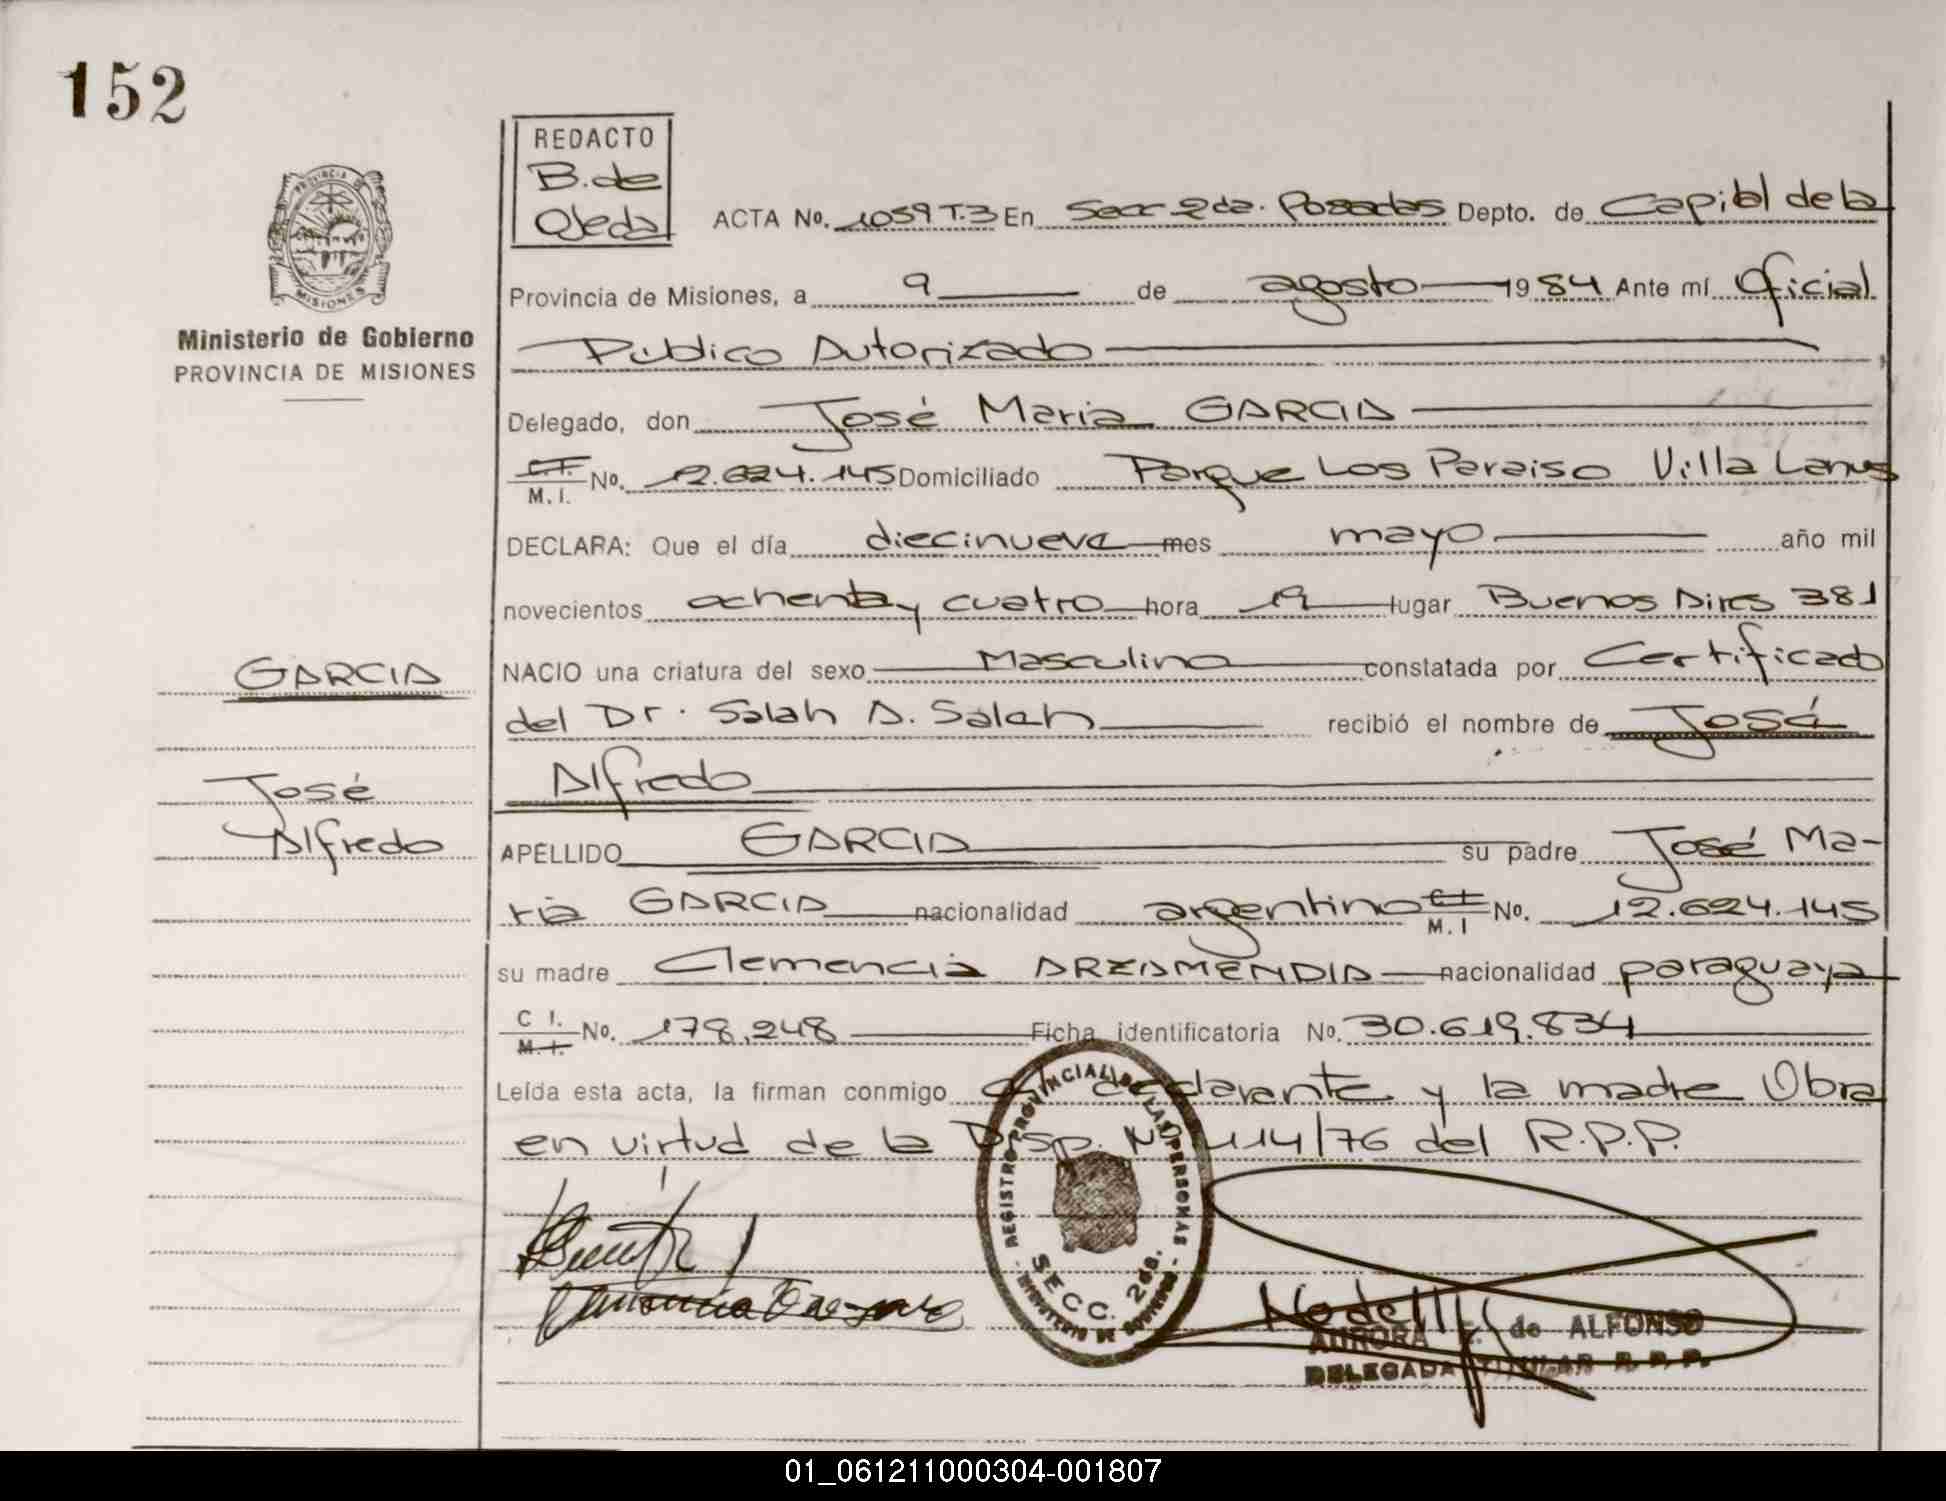 152
REDACTO
B. de
Ojeda
PROVINCIA DE
MISIONES
Ministerio de Gobierno
PROVINCIA DE MISIONES
ACTA No. 1059 T.3 En Secc 2da. Posadas Depto. de Capital de la
Provincia de Misiones, a 9 de agosto 1984 Ante mí Oficial
Público Autorizado
Delegado, don José Maria GARCIA
C.I. M. I. No. 12.624.145 Domiciliado Parque Los Paraiso Villa Lanus
DECLARA: Que el día diecinueve mes mayo año mil
novecientos ochenta y cuatro hora 19 lugar Buenos Aires 381
GARCIA
NACIO una criatura del sexo Masculino constatada por Certificado
del Dr. Salah A. Salah recibió el nombre de José
José
Alfredo
Alfredo
APELLIDO GARCIA su padre José Ma-
ria GARCIA nacionalidad argentino C I M. I No. 12.624.145
su madre Clemencia ARZAMENDIA nacionalidad paraguaya
C I. M. I. No. 178.248 Ficha identificatoria No. 30.619.834
Leída esta acta, la firman conmigo el declarante y la madre Obra
en virtud de la Disp. Nº 114/76 del R.P.P.
REGISTRO PROVINCIAL DE LAS PERSONAS
SECC. 2da.
MINISTERIO DE GOBIERNO
AURORA de ALFONSO
DELEGADA TITULAR R. P. P.
01_061211000304-001807